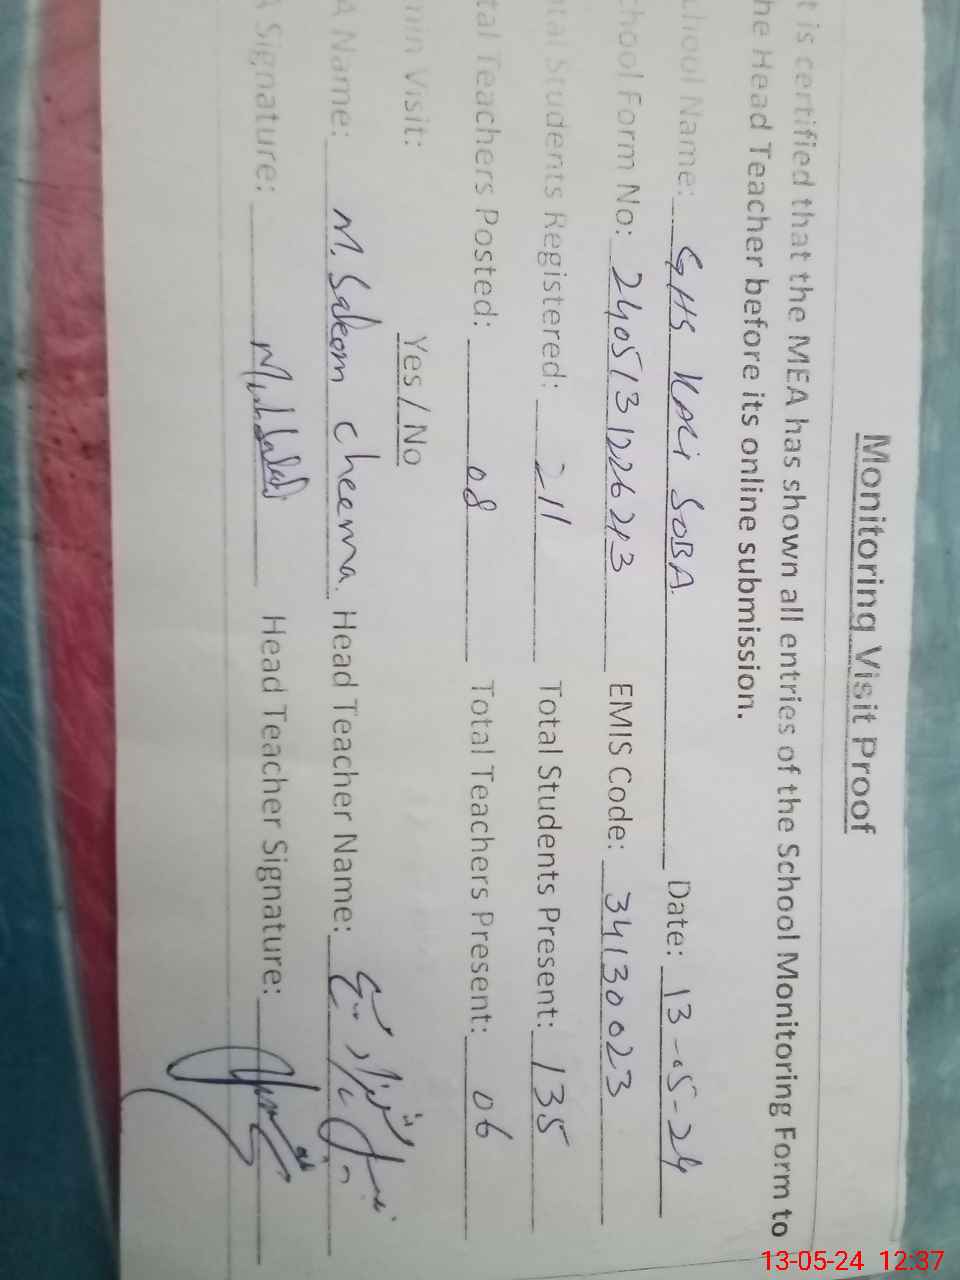 Monitoring Visit Proof
t is certified that the MEA has shown all entries of the School Monitoring Form to
he Head Teacher before its online submission.
chool Name: GHS KALI SOBA Date: 13-05-24
chool Form No: 2405131226213 EMIS Code: 34130023
otal Students Registered: 211 Total Students Present: 135
tal Teachers Posted: 08 Total Teachers Present: 06
min Visit: Yes / No
A Name: M. Saleem Cheema. Head Teacher Name:
A Signature: Head Teacher Signature:
13-05-24 12:37